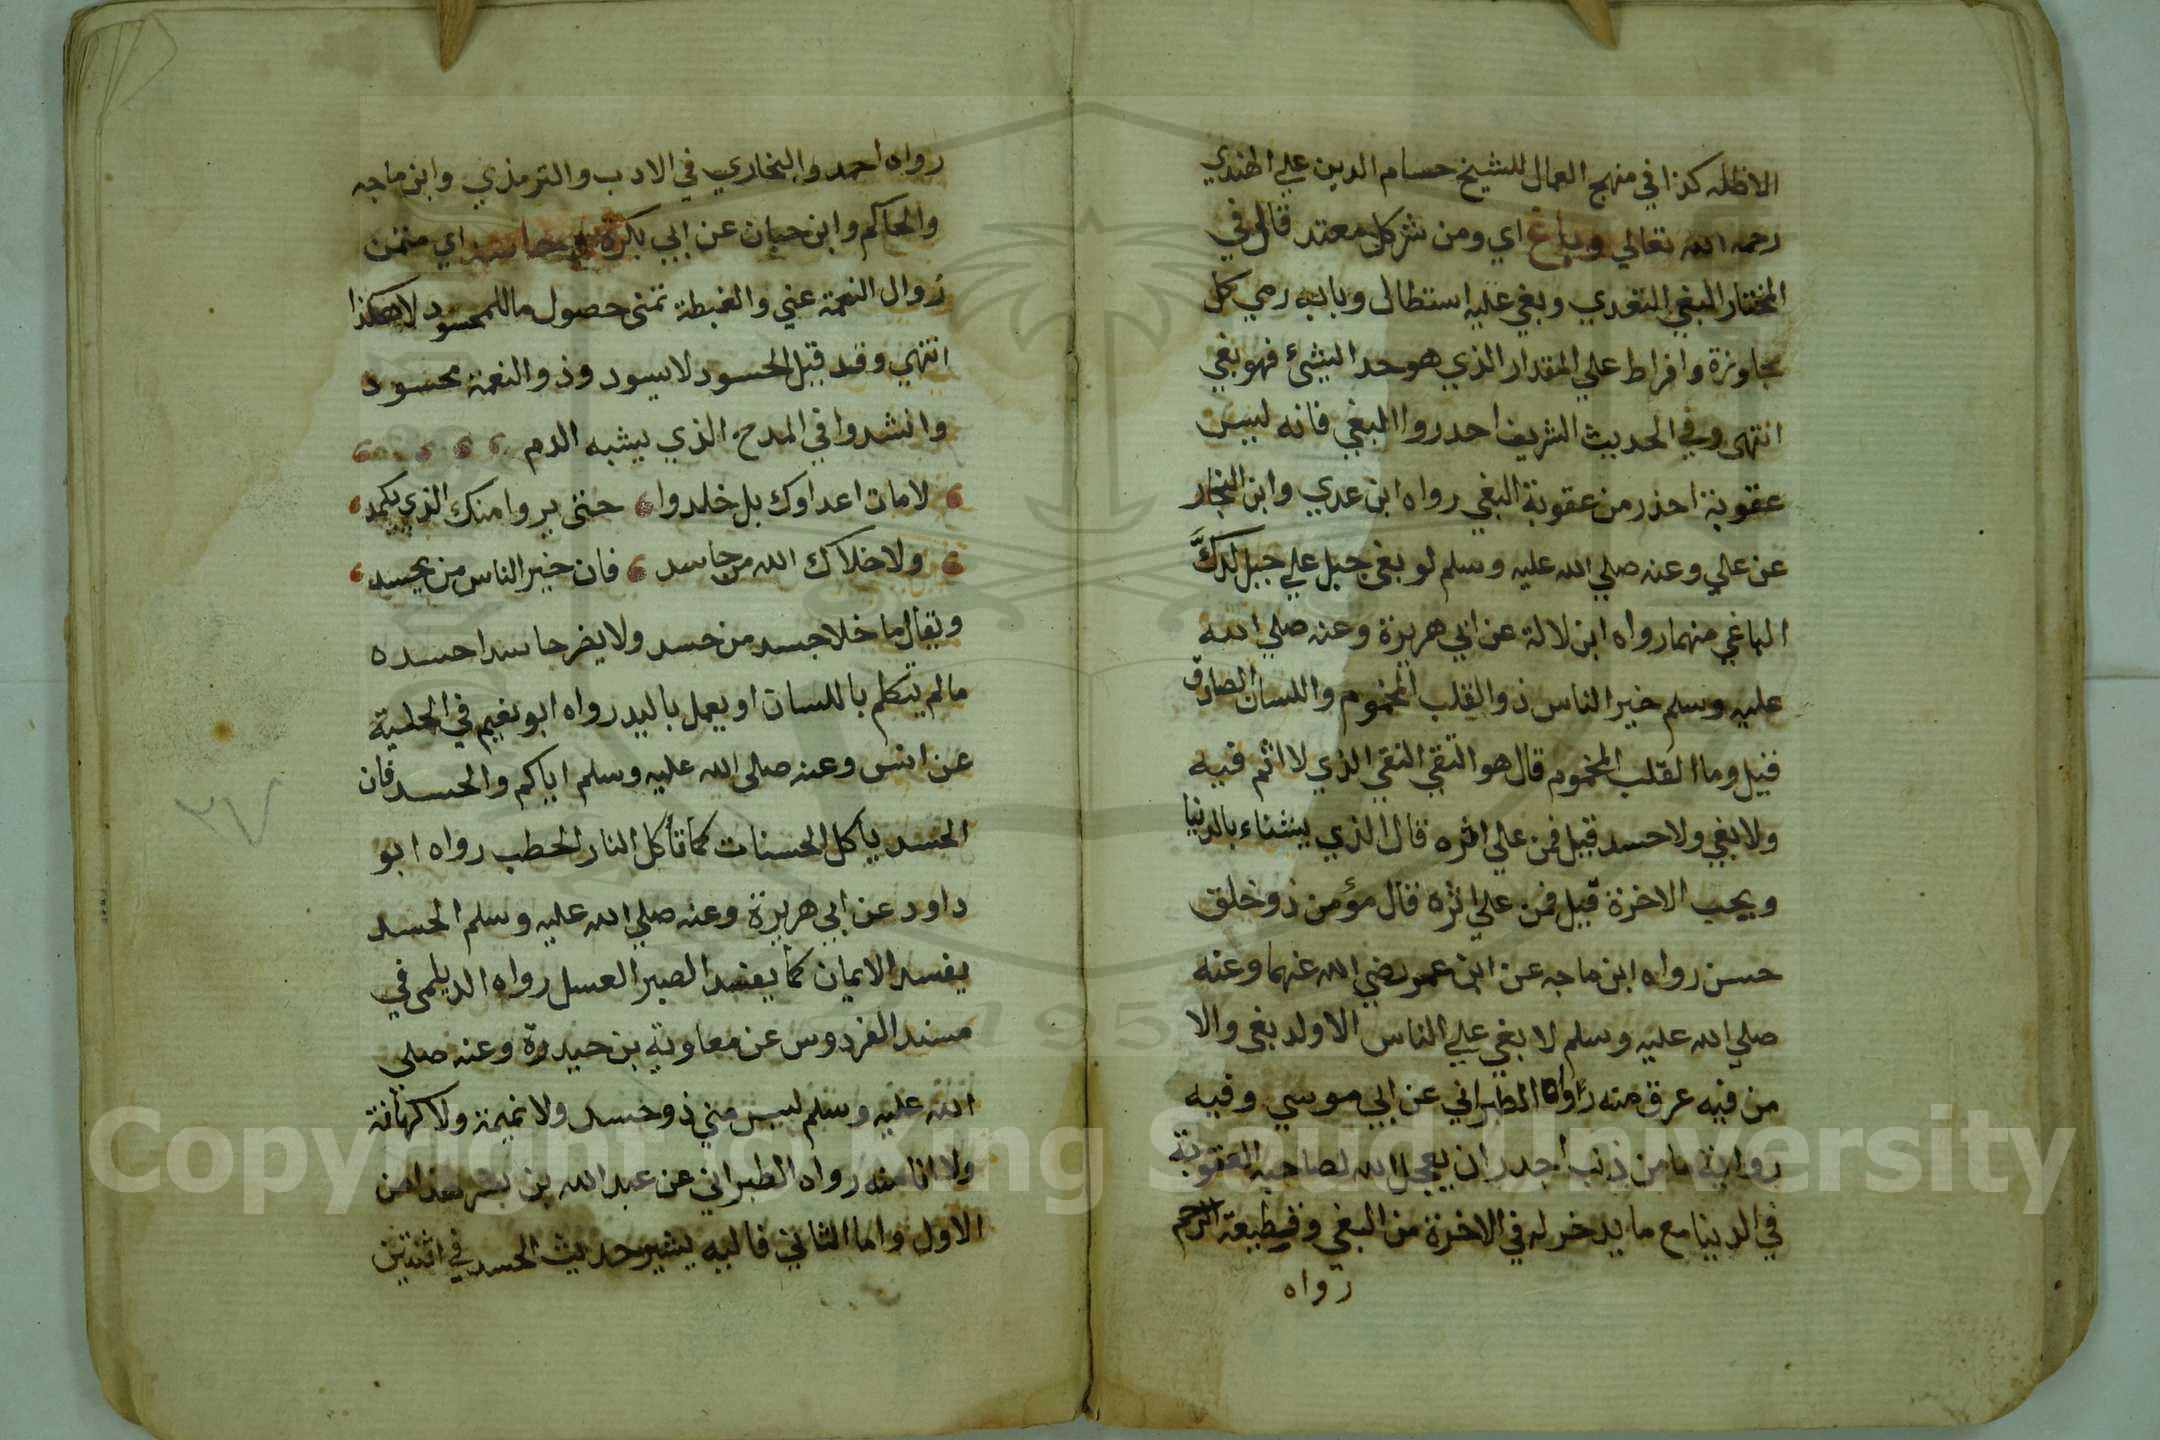 الاظله كذا في منهج العمال للشيخ حسام الدين علي الهندي
رحمه الله تعالي وباغ اي ومن شر كل معتد قال في
المختار البغي التعدي وبغي عليه استطال وبابه رمي كل
مجاوزة وافراط علي المقدار الذي هو حد الشئ فهو بغي
انتهى وفي الحديث الشريف احدروا البغي فانه ليس
عقوبة احذر من عقوبة البغي رواه ابن عدي وابن النجار
عن علي وعنه صلي الله عليه وسلم لو بغي جبل علي جبل لدكَّ
الباغي منهما رواه ابن لالة عن ابي هريرة وعنه صلي الله
عليه وسلم خير الناس ذو القلب المخموم واللسان الصادق
قيل وما القلب المخموم قال هو التقي النقي الذي لا اثم فيه
ولا بغي ولا حسد قيل فمن علي اثره قال الذي يشناء بالدنيا
ويحب الاخرة قيل فمن علي اثره قال مؤمن ذو خلق
حسن رواه ابن ماجه عن ابن عمر رضي الله عنهما وعنه
صلي الله عليه وسلم لا بغي علي الناس الا ولد بغي والا
من فيه عرق منه رواه الطبراني عن ابي موسي وفيه
رواية ما من ذنب اجدر ان يعجل الله لصاحبه العقوبة
في الدنيا مع ما يدخر له في الاخرة من البغي وقطيعة الرحم
رواه
رواه احمد والبخاري في الادب والترمذي وابن ماجه
والحاكم وابن حبان عن ابي بكرة اي متمن
زوال النعمة عني والغبطة تمنى حصول ما للمحسود لا هكذا
انتهي وقد قيل الحسود لا يسود وذو النعمة محسود
وانشدوا في المدح الذي يشبه الذم
لا مات اعداوك بل خلدوا حتى يروا منك الذي يكمد
ولا خلاك الله من حاسد فان خير الناس من يحسد
ويقال ما خلا جسد من حسد ولا يضر حاسدا حسده
مالم يتكلم باللسان او يعمل باليد رواه ابو نعيم في الحلية
عن انس وعنه صلى الله عليه وسلم اياكم والحسد فان
الحسد ياكل الحسنات كما تأكل النار الحطب رواه ابو
داود عن ابي هريرة وعنه صلي الله عليه وسلم الحسد
يفسد الايمان كما يفسد الصبر العسل رواه الديلمى في
مسند الفردوس عن معاوية بن حيدرة وعنه صلى
الله عليه وسلم ليس مني ذو حسد ولا نميمة ولا كهانة
ولا انا منه رواه الطبراني عن عبد الله بن بشر هذا من
الاول واما الثاني فاليه يشير حديث الحسد في اثنتين
٢٧
Copyright © King Saud University
1957